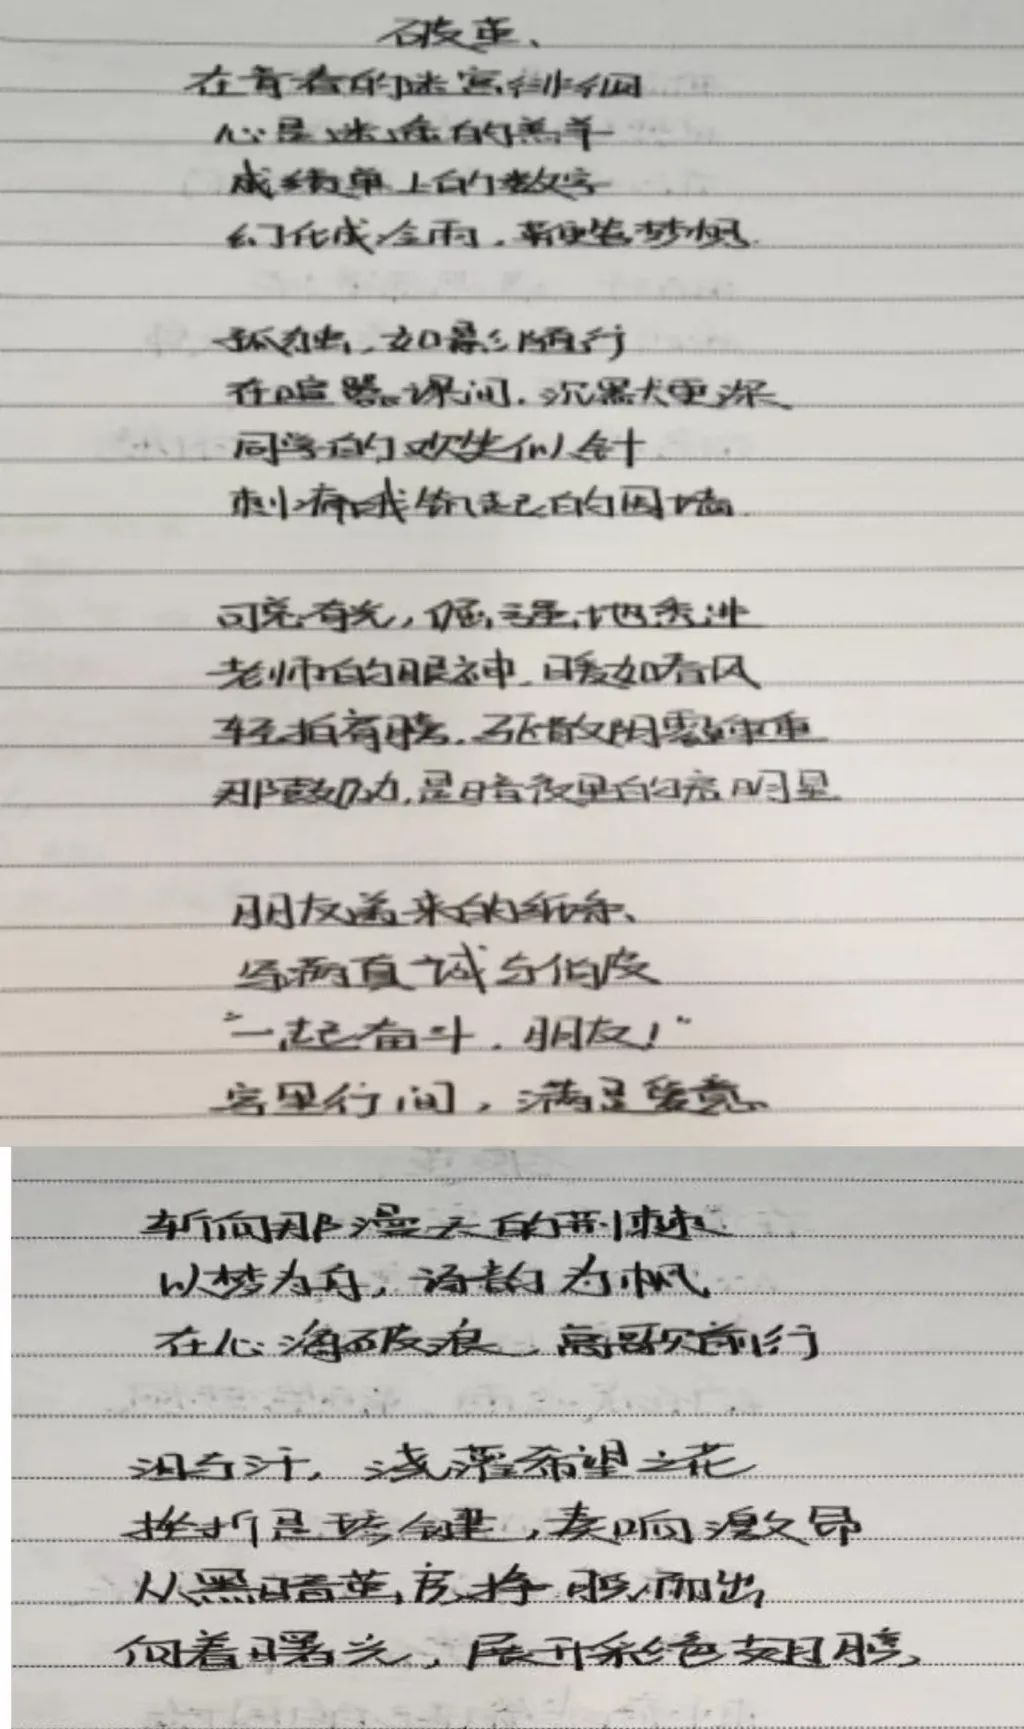 破茧、
在青春的迷宫徘徊
心是迷途的羔羊
成绩单上的数字
幻化成冷雨，鞭笞梦帆
孤独，如影随行
在喧嚣课间，沉默更深
同学的欢笑似针
刺痛我筑起的围墙
可总有光，倔强地透进
老师的眼神，暖如春风
轻拍肩膀，驱散阴霾重重
那鼓励，是暗夜里的启明星
朋友送来的纸条、
写满真诚与俏皮
“一起奋斗，朋友！”
字里行间，满是爱意
斩向那漫天的荆棘
以梦为舟，诗韵为帆
在心海破浪，高歌前行
泪与汗，浇灌希望之花
挫折是琴键，奏响激昂
从黑暗茧房挣脱而出
向着曙光，展开彩色翅膀